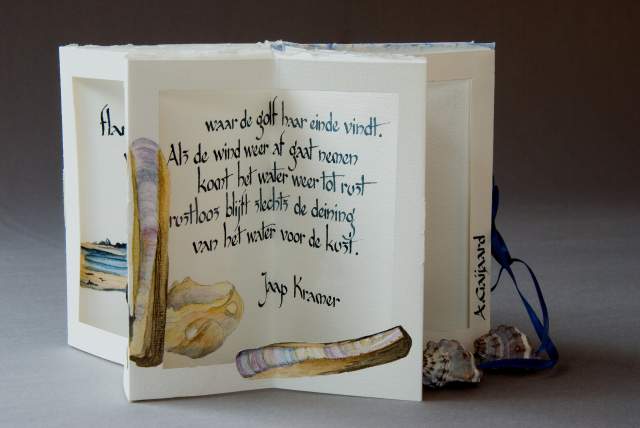 waar de golf haar einde vindt.
Als de wind weer af gaat nemen
komt het water weer tot rust
rustloos blijft slechts de deining
van het water voor de kust.
Jaap Kramer
A. Gaijaard